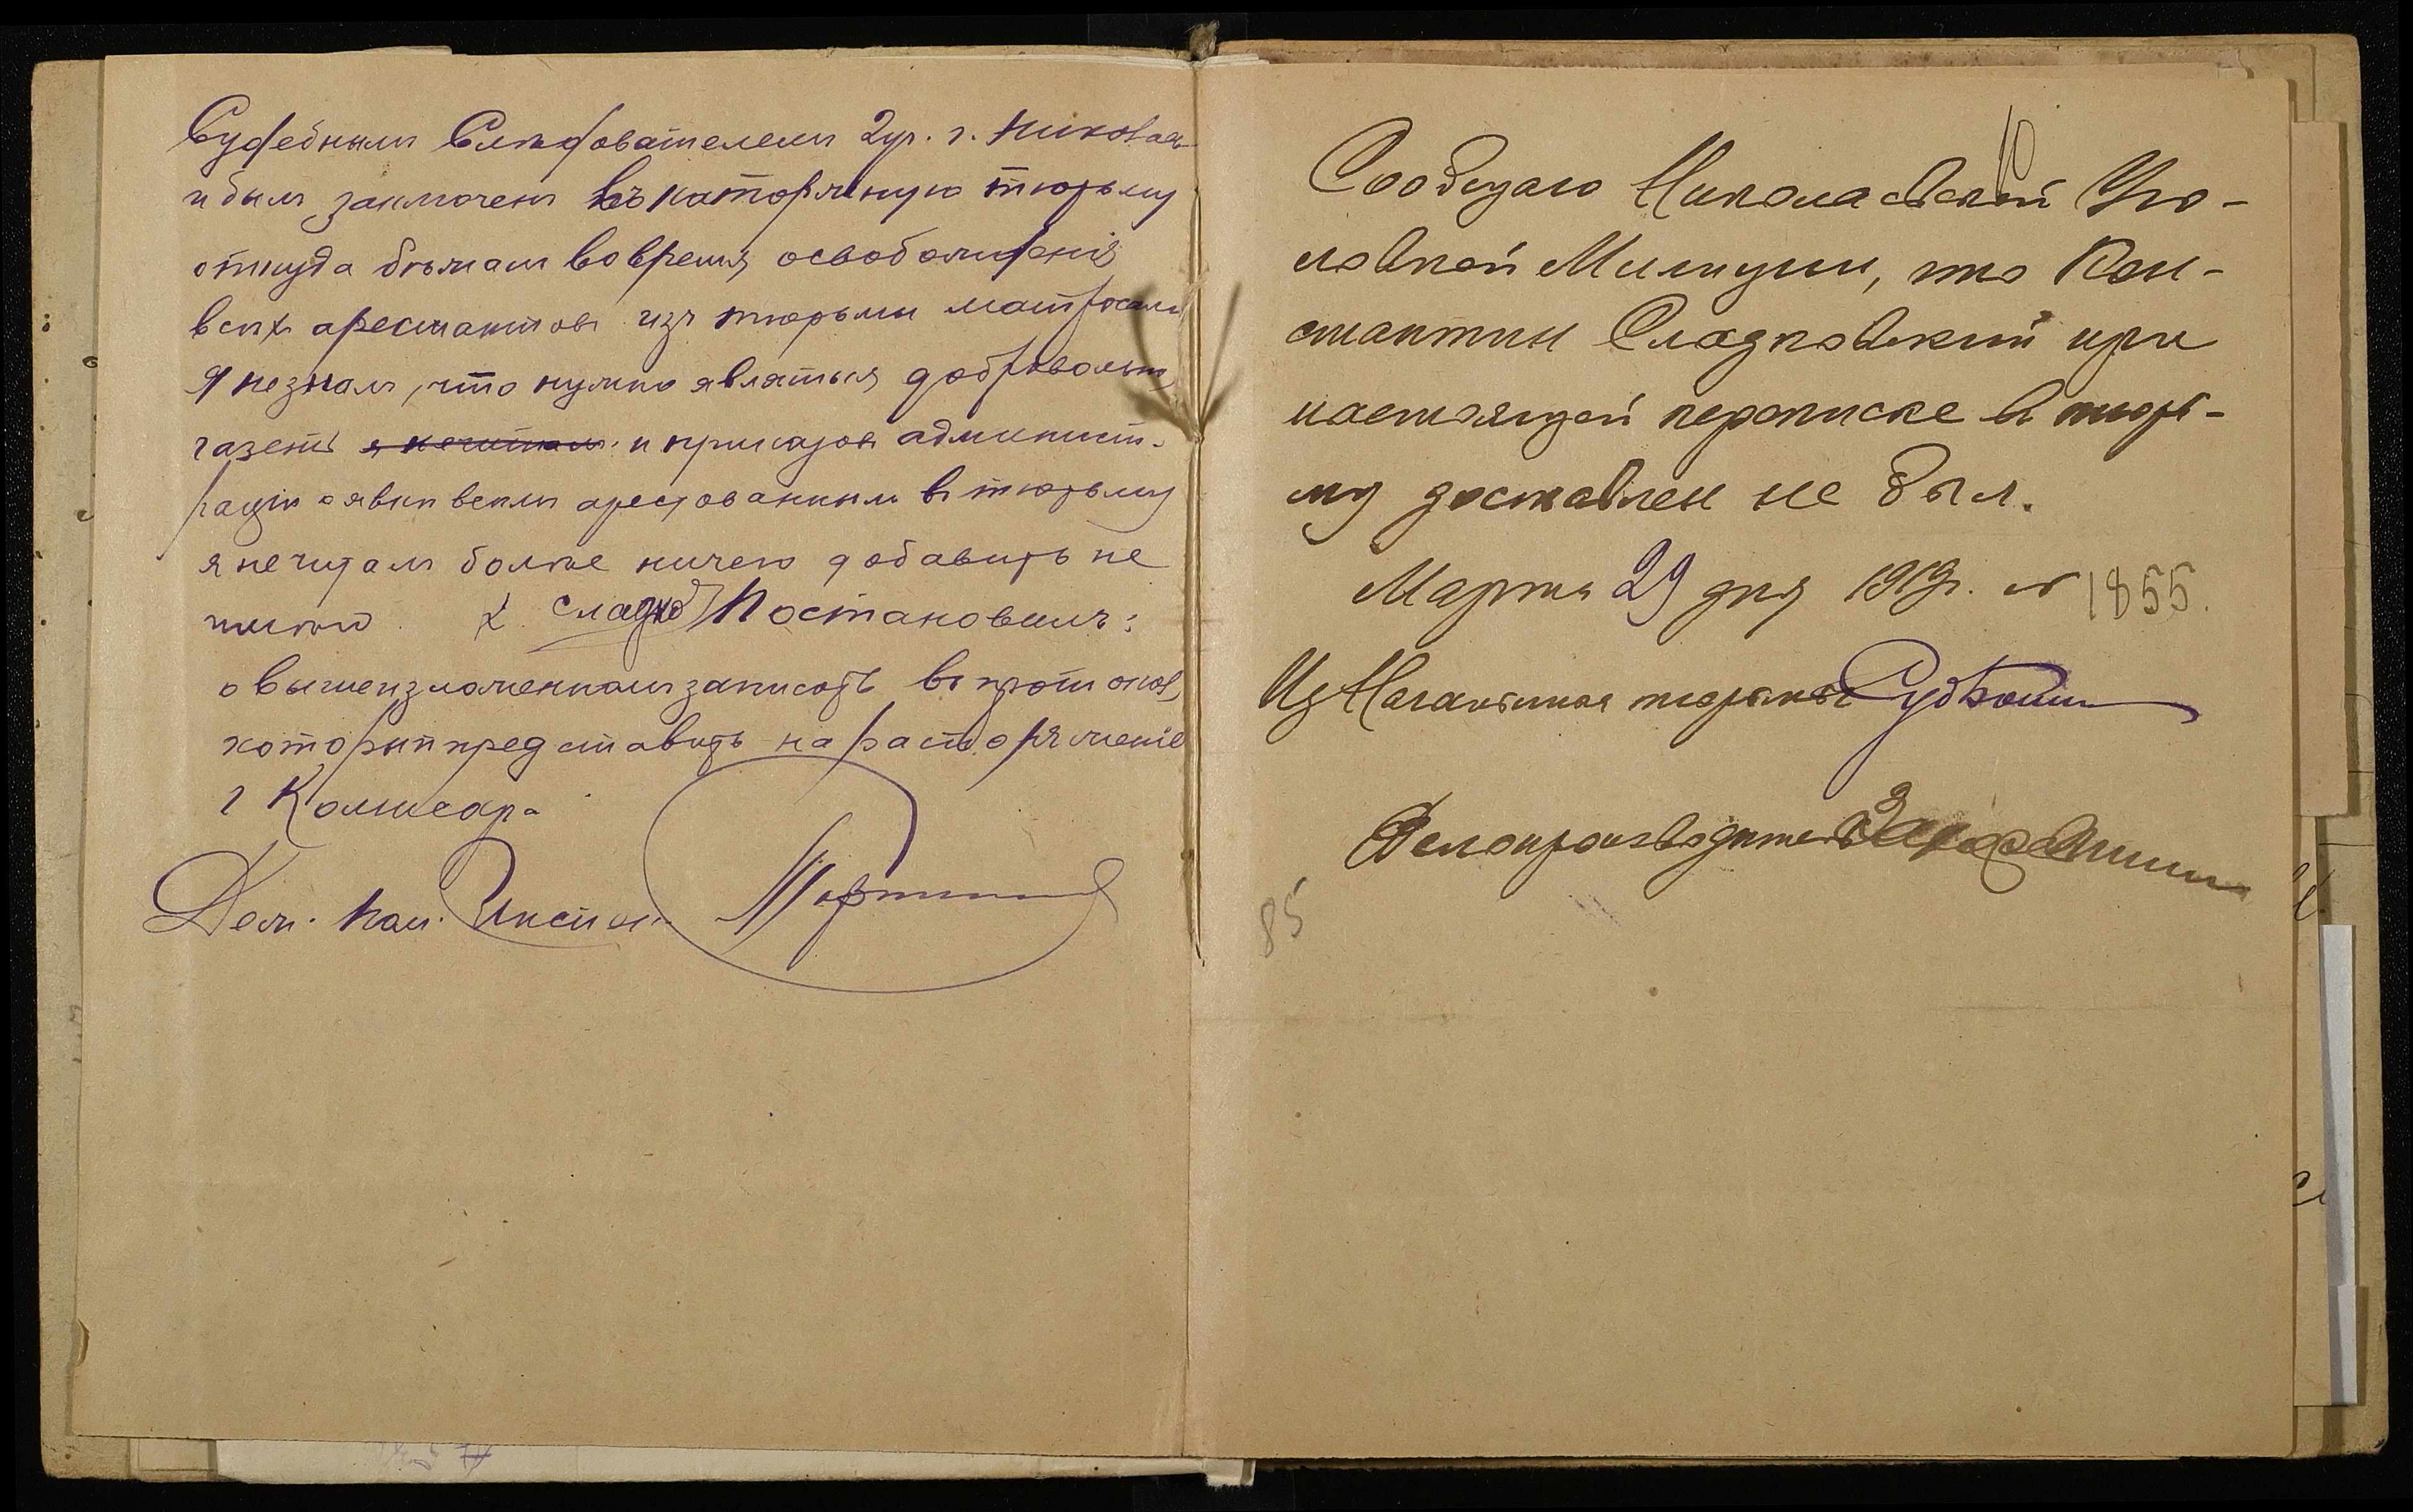 Судебным Следователем 2 уч. г. Николаев
и был заключен въ каторжную тюрьму
откуда бѣжал во время освобождения
всѣх арестантов изъ тюрьмы матросами
Я не знал, что нужно являться добровольно
газеты я не читал и приказов админист-
рации о явки всем арестованным в тюрьму
я не читал болѣе ничего добавить не
имѣю. К. Сладко Постановилъ:
о вышеизложенном записать в протокол,
который представить на распоряжение
г Комисара
Деж. пом.
10
Сообщаю Николаевской Уго-
ловной Милиции, что Кон-
стантин Сладковский при
настоящей переписке в тюрь-
му доставлен не был.
Марта 29 дня 1919г. № 1855.
тюрьмы
Делопроизводитель
85